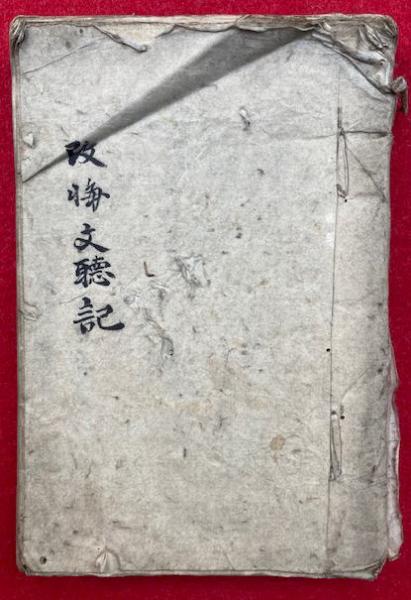 改悔文聴記